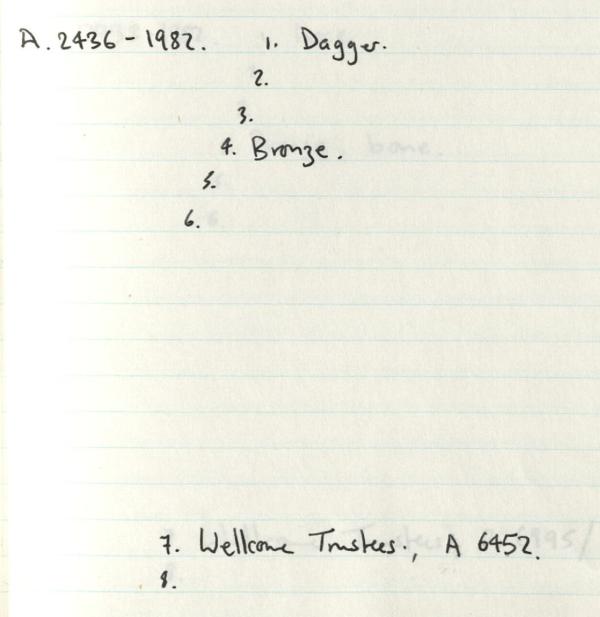 A. 2436 - 1982. 1. Dagger.
2.
3.
4. Bronze.
5.
6.
7. Wellcome Trustees., A 6452.
8.